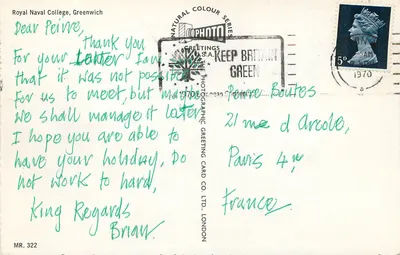 Royal Naval College, Greenwich
Dear Peirre,
Thank you
For your Letter I am
that it was not possible
For us to meet, but maybe
we shall manage it later
I hope you are able to
have your holiday, Do
not work to hard,
King Regards
Brian.
MR. 322
NATURAL COLOUR SERIES
PHOTO
GREETINGS
PHOTOGRAPHIC GREETING CARD CO. LTD., LONDON
KEEP BRITAIN
GREEN
1970
5D
Pierre Boutes
21 rue d'Arcole,
Paris 4e,
France.